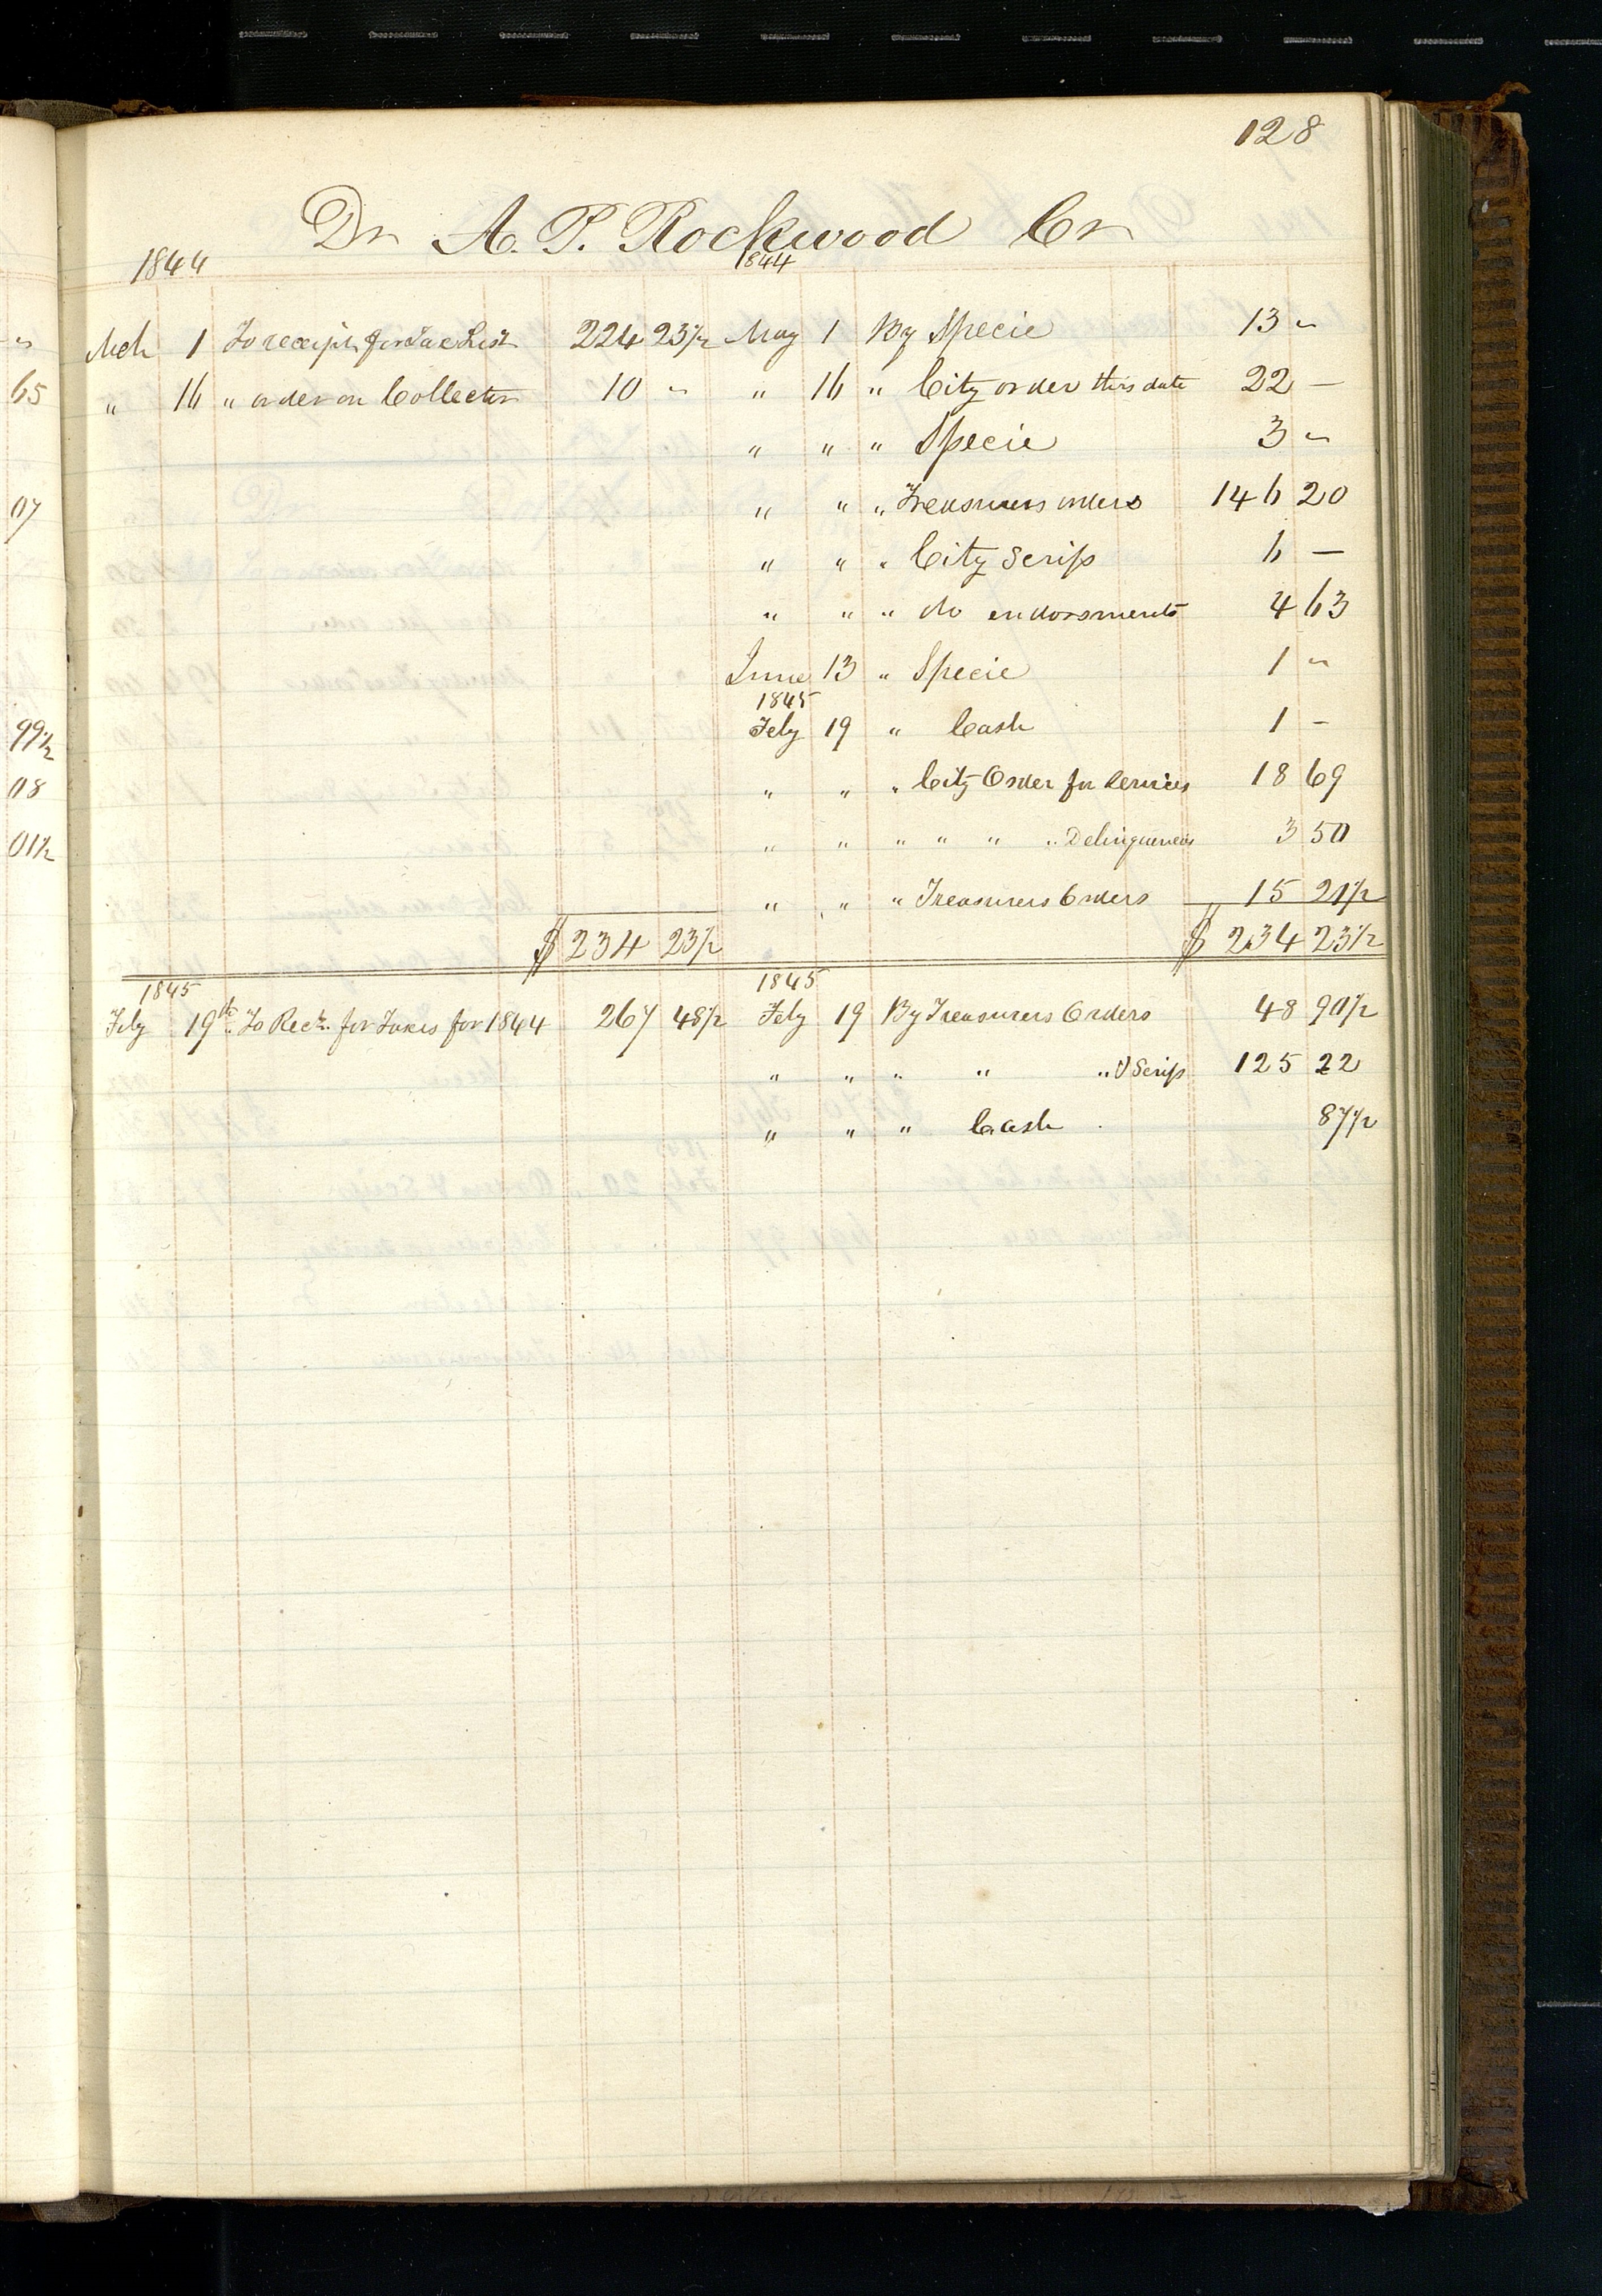 128
Dr A. P. Rockwood Cr
1844 1844
Mch 1 To receipt for Tax List 224 23½ May 1 By Specie 13 "
" 16 " order on Collector 10 " " 16 " City order this date 22 —
" " " Specie 3 "
" " " Treasurers orders 146 20
" " " City Scrip 6 —
" " " do endorsments 4 63
June 13 " Specie 1 "
1845
Feby 19 " Cash 1 -
" " " City Order for Services 18 69
" " " " " " Delinquencies 3 50
" " " Treasurers Orders 15 21½
$ 234 23½ $ 234 23½
1845 1845
Feby 19th To Rect. for Taxes for 1844 267 48½ Feby 19 By Treasurers Orders 48 90½
" " " " " Scrip 125 22
" " " Cash 87½
65
07
99½
08
01½